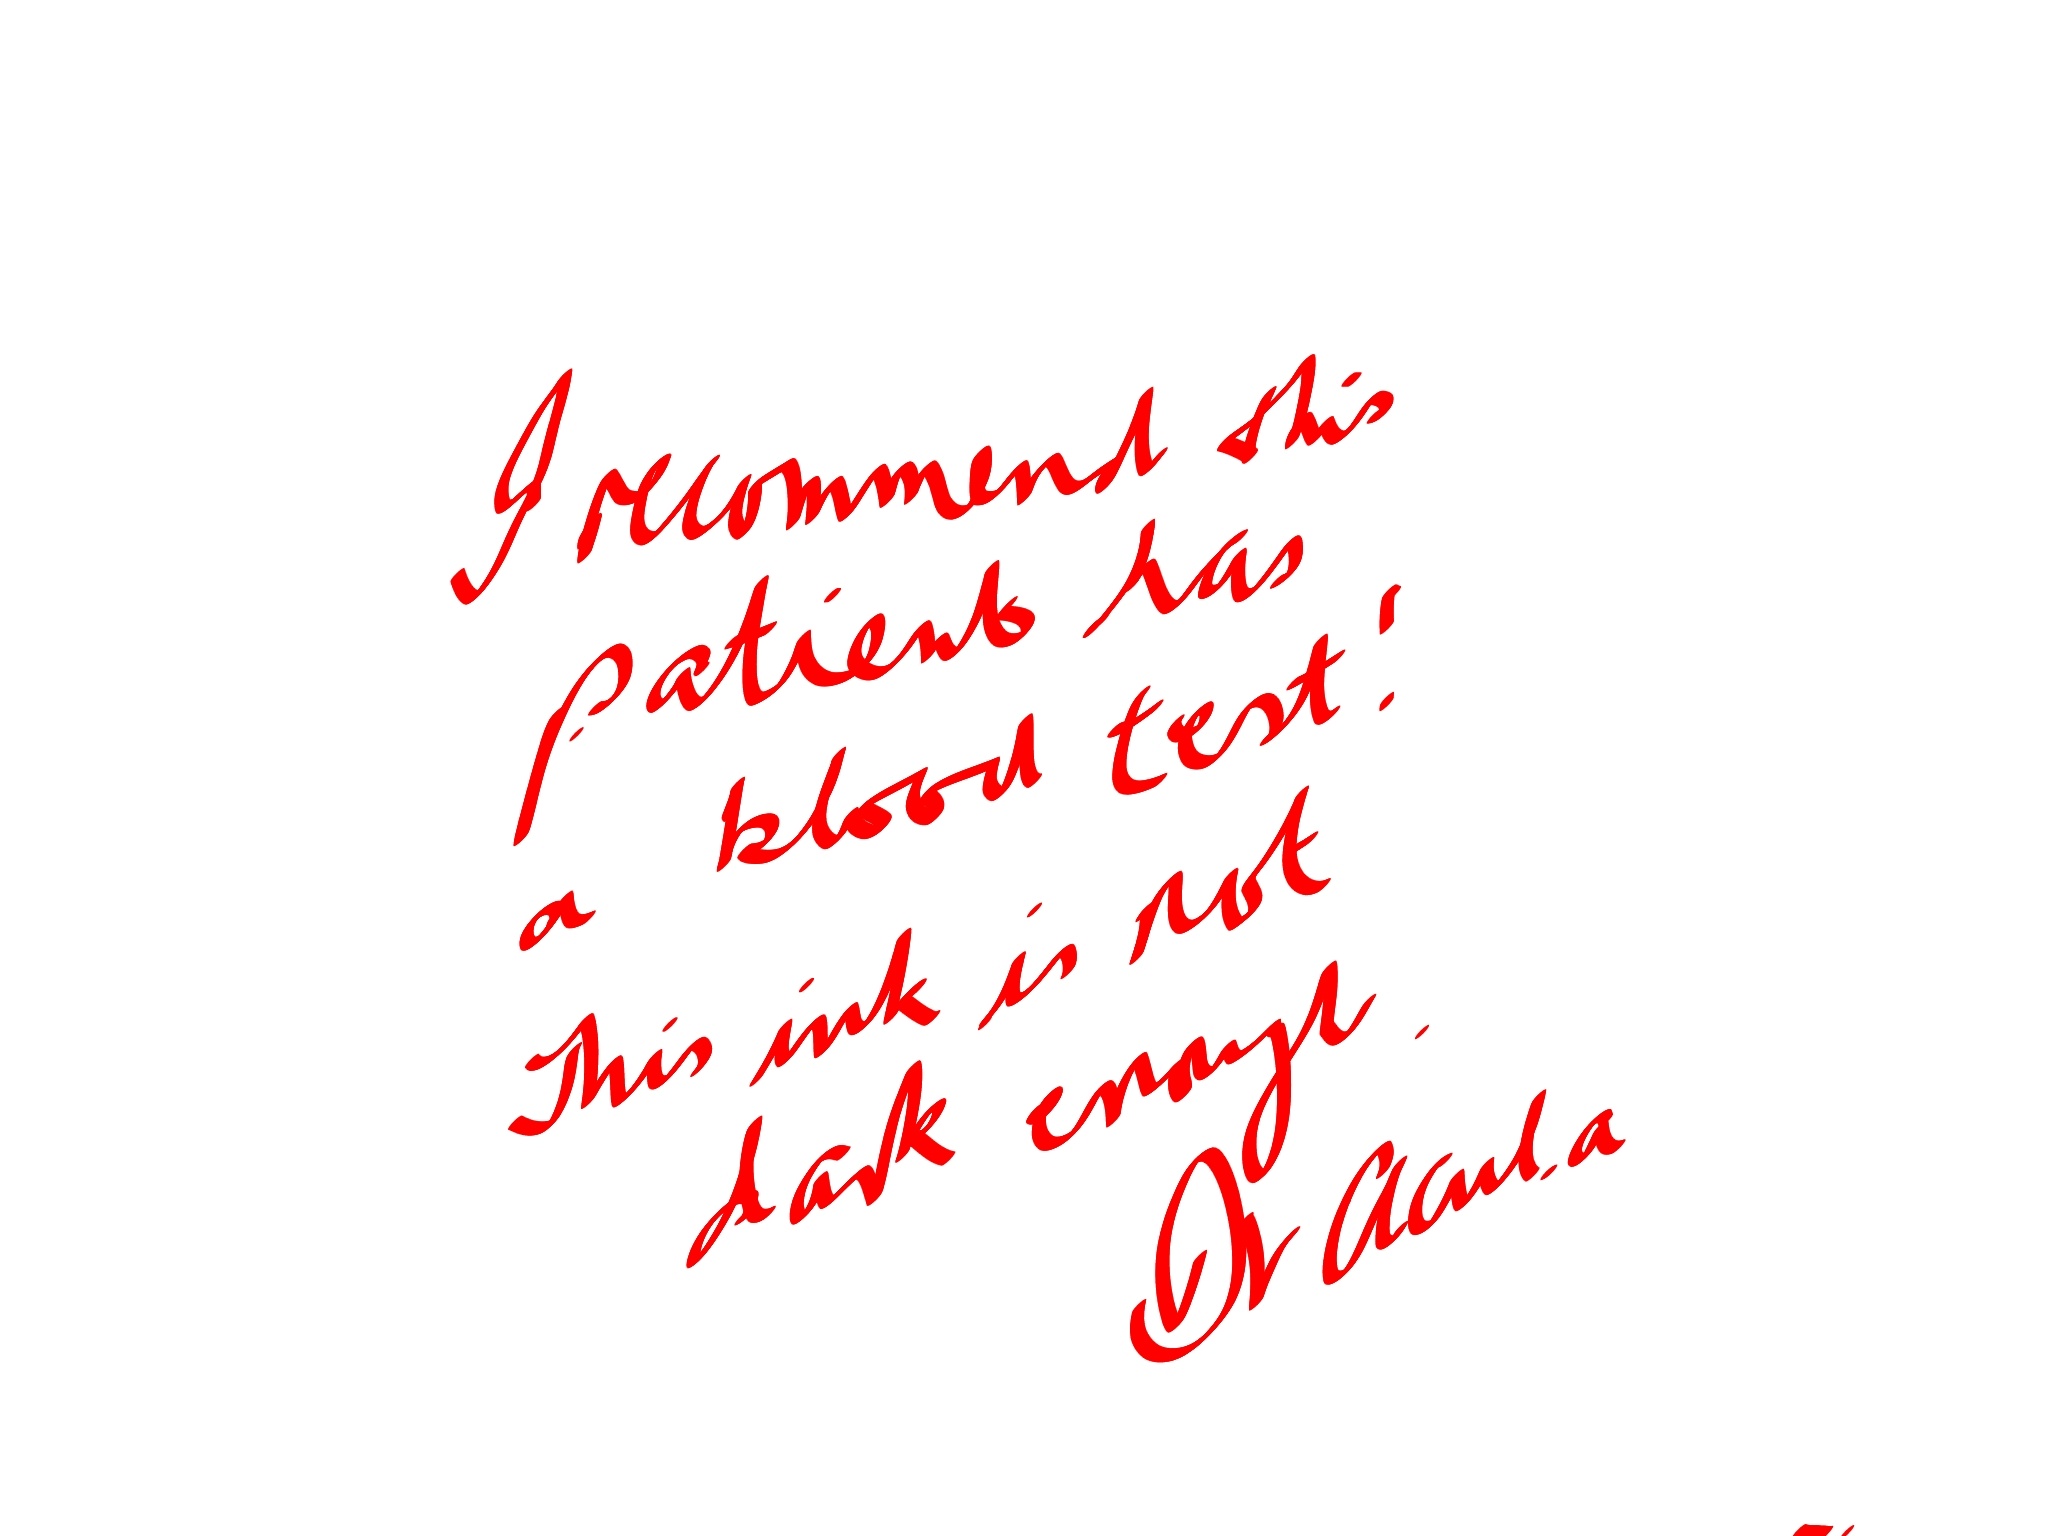 I recommend this
patient has
a blood test!
This ink is not
dark enough.
Dr